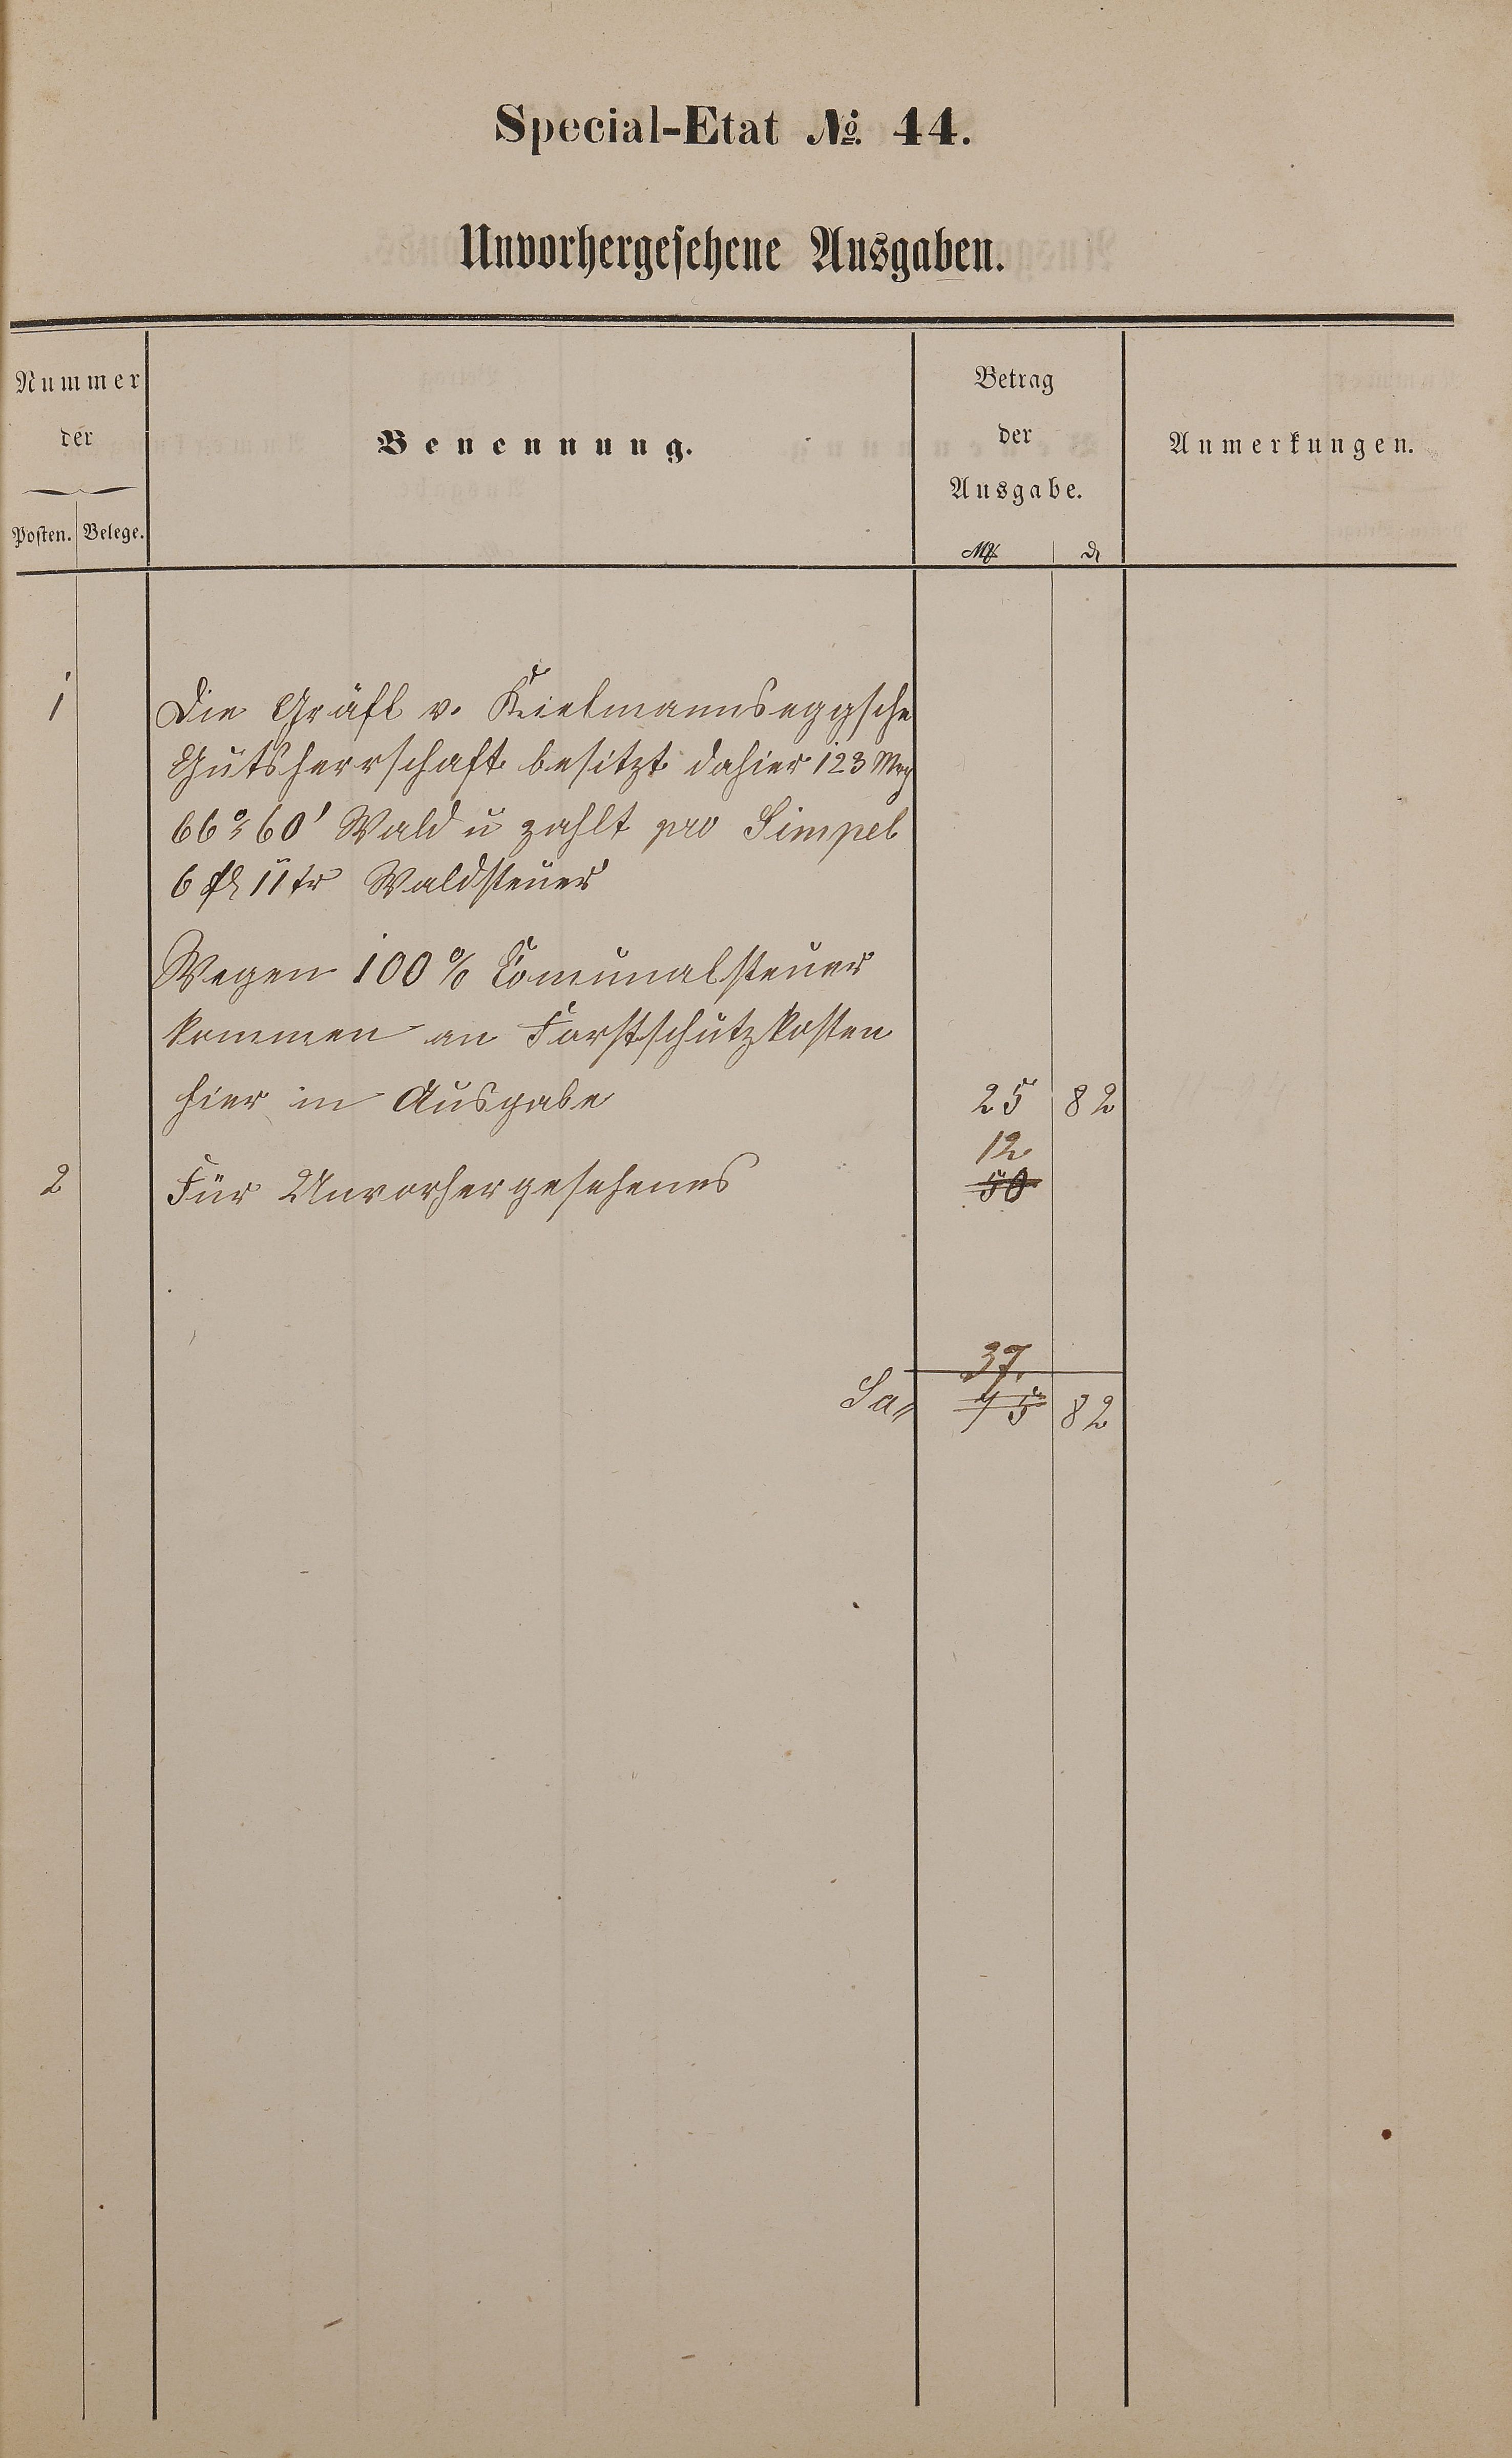 Special-Etat № 44.
Unvorhergesehene Ausgaben.
Nummer
der
Posten. Belege.
Benennung.
Betrag
der
Ausgabe.
Mk. ₰
Anmerkungen.
1 Die Gräfl v. Kielmannseggsche
Gutsherrschaft besitzt dahier 123 Mrg
66° 60' Wald u zahlt pro Simpel
6 fl 11 kr Waldsteuer
Wegen 100% Com̄unalsteuer
kommen an Forstschutzkosten
hier in Ausgabe 25 82
12
2 Für Unvorhergesehenes 50
37.
Sa, 75 82